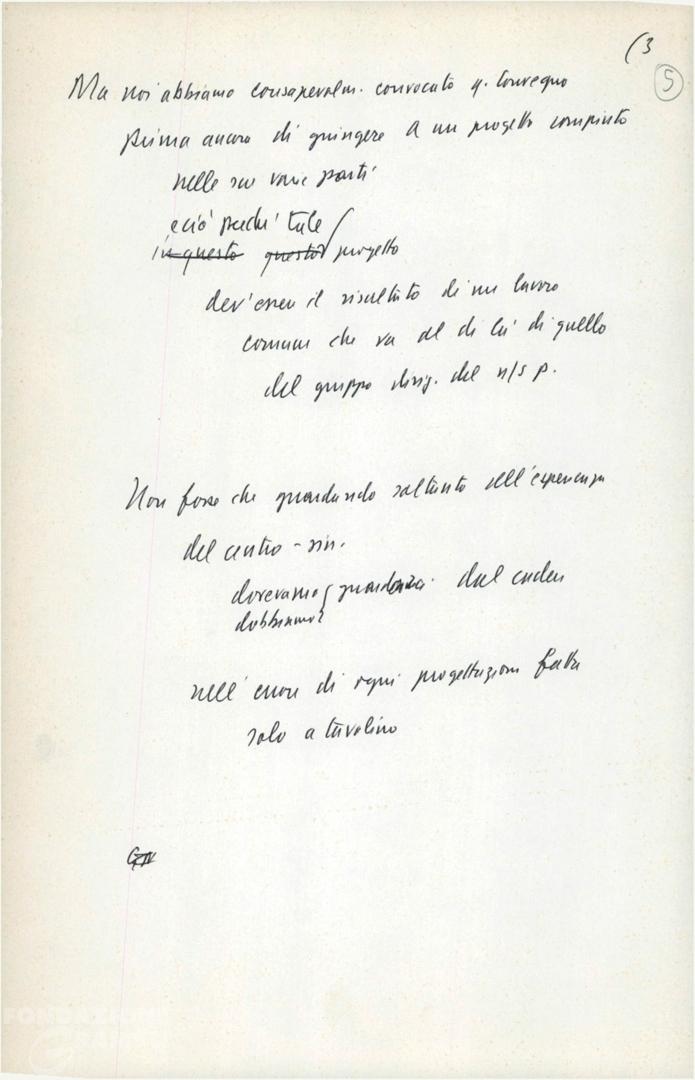 (3
5
Ma noi abbiamo consapevolm. convocato q. convegno
prima ancora di giungere a un progetto compiuto
nelle sue varie parti
e ciò perché tale
in questo questo progetto
dev'essere il risultato di un lavoro
comune che va al di là di quello
del gruppo dirig. del n/s p.
Non fosse che guardando soltanto all'esperienza
del centro-sin.
dovevamo guardarci dal cadere
dobbiamo
nell'errore di ogni progettazione fatta
solo a tavolino
FONDAZIONE